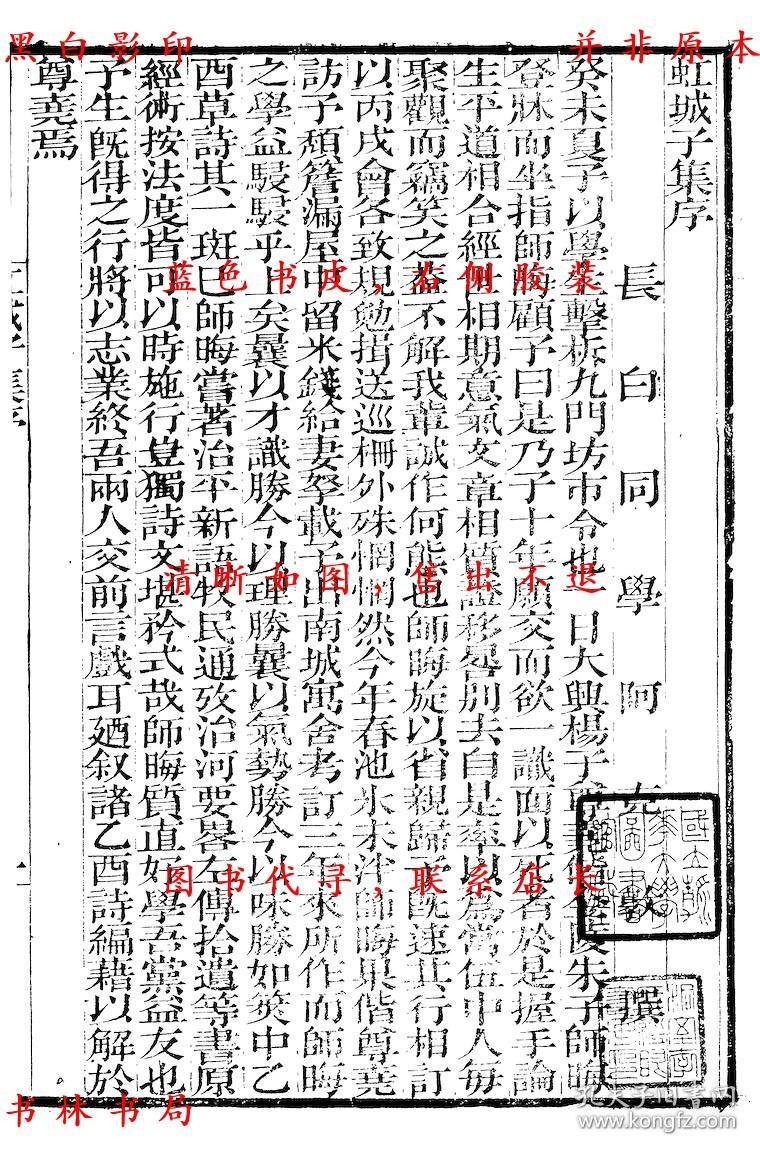 黑白影印
并非原本
虹城子集序
長白同學阿 撰
癸未夏予以學 擊柝九門坊市令也一日大興楊子 陵朱子師晦
登牀而坐指師晦顧予曰是乃子十年願交而欲一識面以死者於是握手論
生平道相合經 相期意氣文章相質證移晷別去自是率以為常伍中人每
聚觀而竊笑之蓋不解我輩誠作何態也師晦旋以省親歸 既速其行相訂
以丙戌會各致規勉揖送巡柵外殊惘惘然今年春池氷未泮師晦果偕尊堯
訪予頹簷漏屋中留米錢給妻孥載予出南城寓舍考訂三年來所作而師晦
之學益駸駸乎上矣曩以才識勝今以理勝曩以氣勢勝今以味勝如筴中乙
酉草詩其一斑已師晦嘗著治平新語牧民通攷治河要畧左傳拾遺等書原
經術按法度皆可以時施行豈獨詩文堪矜式哉師晦質直好學吾黨益友也
予生旣得之行將以志業終吾兩人交前言戲耳廼叙諸乙酉詩編藉以解於
尊堯焉
集序
一
蓝色书皮,右侧胶装
清晰如图,售出不退
图书代寻,联系店长
书林书局
孔夫子旧书网
www.kongfz.com